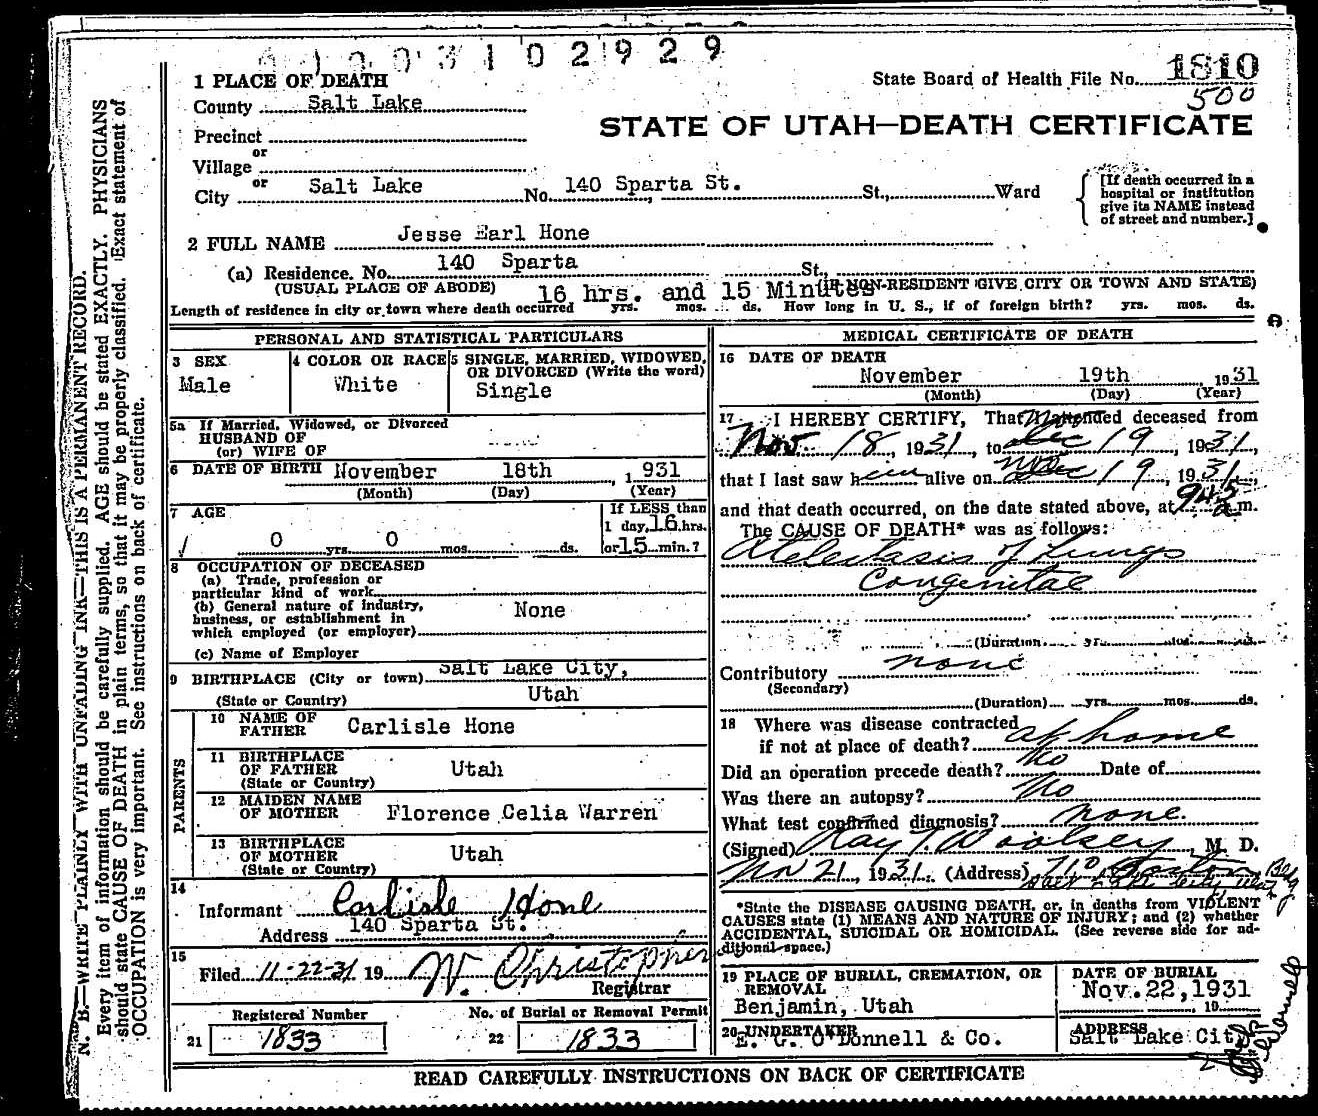 3 1 0 2 9 2 9
1 PLACE OF DEATH
State Board of Health File No. 1810
County Salt Lake
500
STATE OF UTAH—DEATH CERTIFICATE
Precinct
or
Village
or
City Salt Lake No. 140 Sparta St. St., Ward
[If death occurred in a hospital or institution give its NAME instead of street and number.]
2 FULL NAME Jesse Earl Hone
(a) Residence. No. 140 Sparta St.,
(USUAL PLACE OF ABODE) (IF NON-RESIDENT GIVE CITY OR TOWN AND STATE)
16 hrs. and 15 Minutes
Length of residence in city or town where death occurred yrs. mos. ds. How long in U. S., if of foreign birth? yrs. mos. ds.
PERSONAL AND STATISTICAL PARTICULARS
3 SEX
Male
4 COLOR OR RACE
White
5 SINGLE, MARRIED, WIDOWED,
OR DIVORCED (Write the word)
Single
5a If Married, Widowed, or Divorced
HUSBAND OF
(or) WIFE OF
6 DATE OF BIRTH November 18th, 1931
(Month) (Day) (Year)
7 AGE
0 yrs. 0 mos. ds.
If LESS than
1 day, 16 hrs.
or 15 min.?
8 OCCUPATION OF DECEASED
(a) Trade, profession or
particular kind of work
(b) General nature of industry,
business, or establishment in
which employed (or employer)
None
(c) Name of Employer
9 BIRTHPLACE (City or town) Salt Lake City,
(State or Country) Utah
PARENTS
10 NAME OF
FATHER Carlisle Hone
11 BIRTHPLACE
OF FATHER Utah
(State or Country)
12 MAIDEN NAME
OF MOTHER Florence Celia Warren
13 BIRTHPLACE
OF MOTHER Utah
(State or Country)
14
Informant Carlisle Hone
Address 140 Sparta St.
15
Filed 11-22-31 19 W. Christopher
Registrar
Registered Number
21 1833
No. of Burial or Removal Permit
22 1833
MEDICAL CERTIFICATE OF DEATH
16 DATE OF DEATH
November 19th, 1931
(Month) (Day) (Year)
17 I HEREBY CERTIFY, That I attended deceased from
Nov. 18, 1931, to Dec 19, 1931,
that I last saw him alive on Nov 19, 1931,
and that death occurred, on the date stated above, at 945 a.m.
The CAUSE OF DEATH* was as follows:
Atelectasis of Lungs
Congenital
(Duration yrs. mos. ds.
Contributory none
(Secondary)
(Duration) yrs. mos. ds.
18 Where was disease contracted
if not at place of death? at home
Did an operation precede death? No Date of
Was there an autopsy? No
What test confirmed diagnosis? none.
(Signed) Ray T. Woolsey, M. D.
Nov 21, 1931. (Address) 710 Bldg
Salt Lake City Utah
*State the DISEASE CAUSING DEATH, or, in deaths from VIOLENT
CAUSES state (1) MEANS AND NATURE OF INJURY; and (2) whether
ACCIDENTAL, SUICIDAL OR HOMICIDAL. (See reverse side for ad-
ditional space.)
19 PLACE OF BURIAL, CREMATION, OR
REMOVAL
Benjamin, Utah
DATE OF BURIAL
Nov. 22, 1931
19
20 UNDERTAKER
E. G. O'Donnell & Co.
ADDRESS
Salt Lake City
READ CAREFULLY INSTRUCTIONS ON BACK OF CERTIFICATE
N. B.—WRITE PLAINLY WITH UNFADING INK—THIS IS A PERMANENT RECORD.
Every item of information should be carefully supplied. AGE should be stated EXACTLY. PHYSICIANS
should state CAUSE OF DEATH in plain terms, so that it may be properly classified. Exact statement of
OCCUPATION is very important. See instructions on back of certificate.